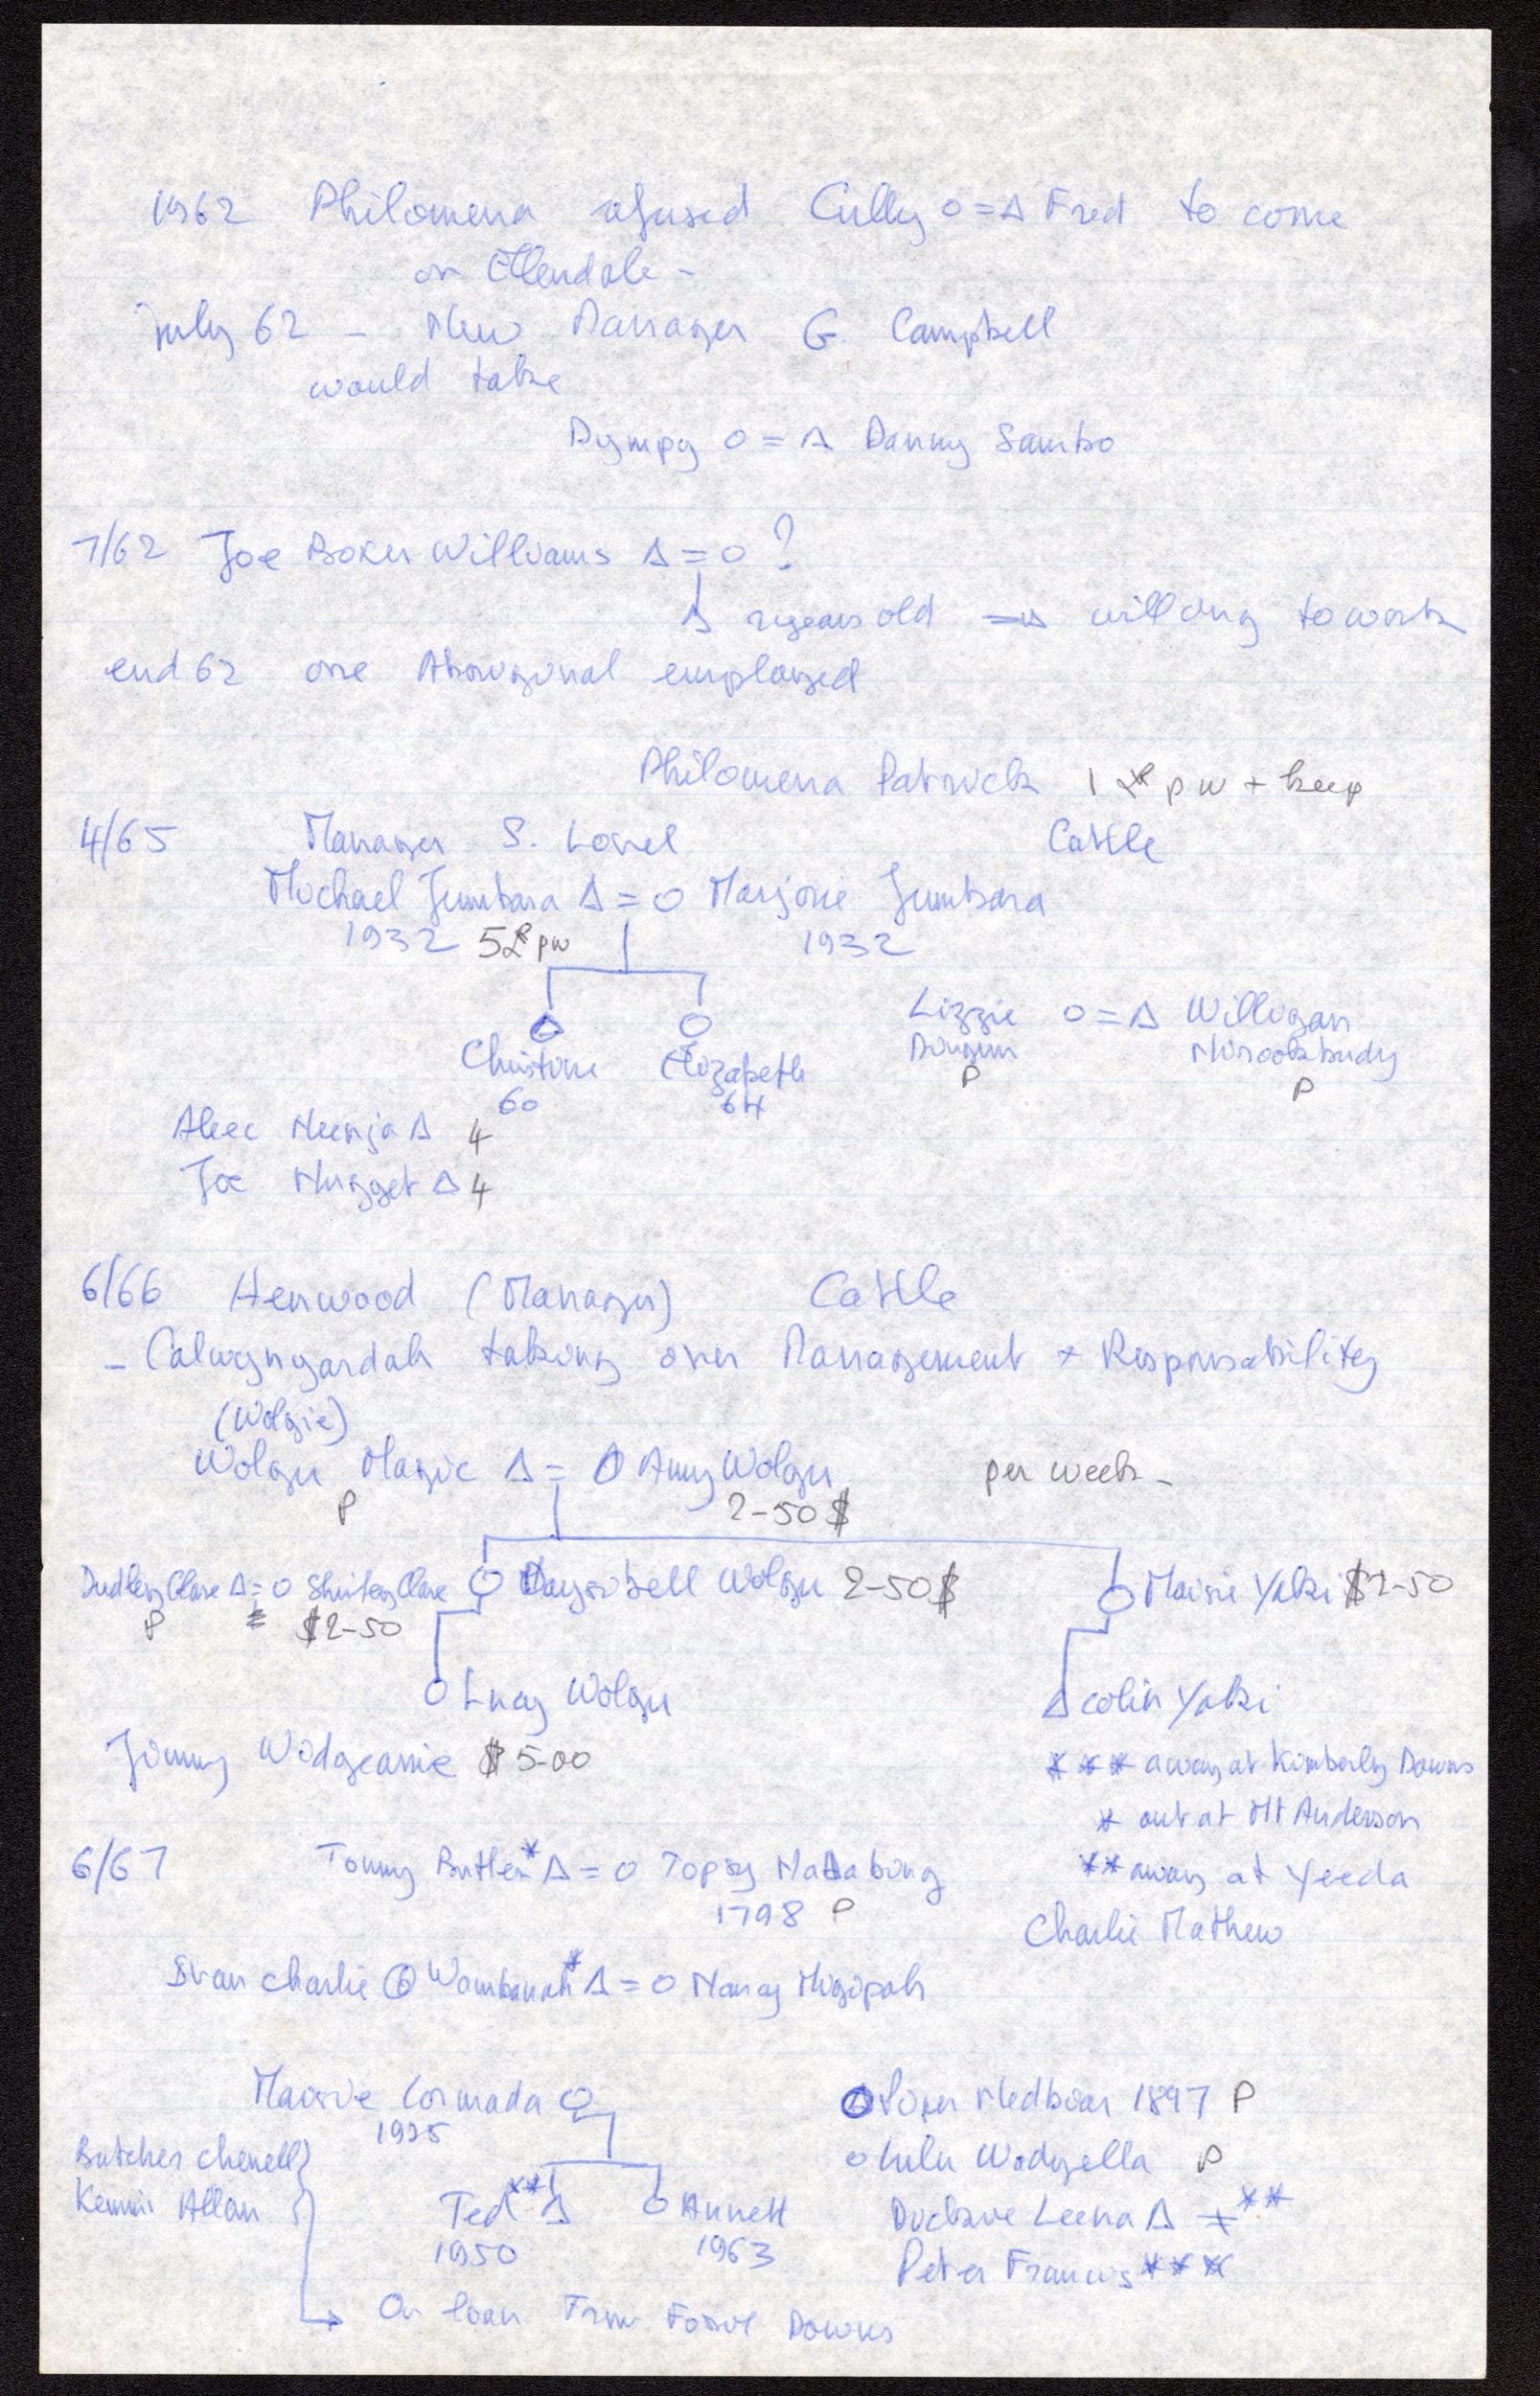 1962 Philomena refused Cully O = Δ Fred to come
on Ellendale -
July 62 - New Manager G. Campbell
would take
Dympy O = Δ Danny Sambo
7/62 Joe Boxer Williams Δ = O ?
Δ 2 years old willing to work
end 62 one Aboriginal employed
Philomena Patrick 1 £ p w + keep
4/65 Manager S. Lovel Cattle
Michael Jumbara Δ = O Marjorie Jumbara
1932 5£ pw 1932
Christine Elizabeth
60 64
Lizzie O = Δ Willigan
P P
Alec Neenja Δ 4
Joe Nugget Δ 4
6/66 Henwood (Manager) Cattle
- Calwynyardah taking over Management + Responsability
(Wolgie)
Wolgu Magic Δ = O Amy Wolgu per week -
P 2-50 $
Dudley Clare Δ = O Shirley Clare O Daysibell Wolgu 2-50$ O Maisie Yaki $2-50
P $2-50
O Lucy Wolgu Δ Colin Yaki
Jimmy Widgearrie $ 5-00
*** away at Kimberly Downs
* out at Mt Anderson
** away at Yeeda
Charlie Mathew
6/67 Tommy Butler * Δ = O Topsy
1798 P
Ivan Charlie Wambanah * Δ = O Nancy Migipah
Maisie Cormada O
1925
Butcher Cherell
Kennie Allan
Ted ** Δ O Annett
1950 1963
On loan From Fossil Downs
Piper Nedboar 1897 P
O Lulu Wodgella P
Duckie Leena Δ **
Peter Francis ***